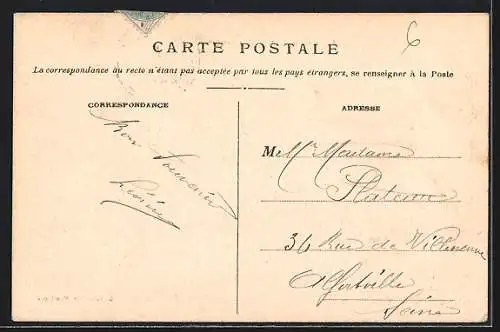 6
CARTE POSTALE
La correspondance au recto n'étant pas acceptée par tous les pays étrangers, se renseigner à la Poste
CORRESPONDANCE
ADRESSE
Bon Souvenir
M Madame
36 Rue de Villeneuve
Alfortville
Seine